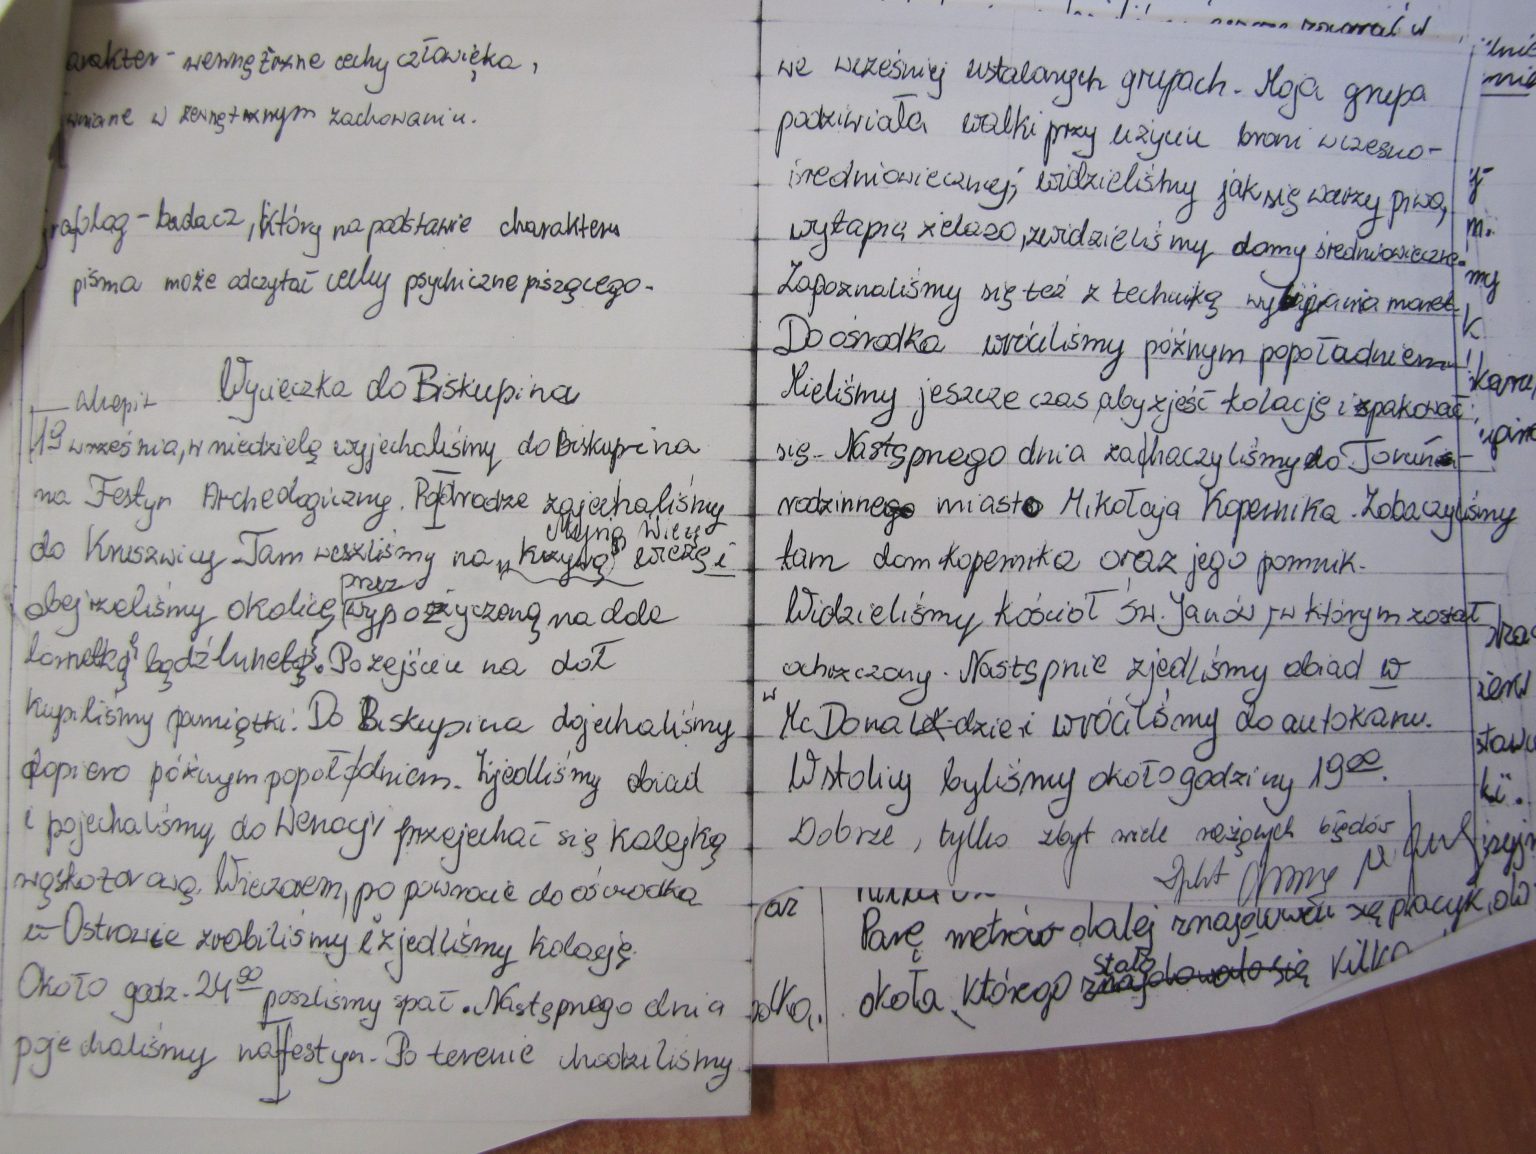 arakter - wewnętrzne cechy człowieka,
w zewnętrznym zachowaniu.
grafolog - badacz, który na podstawie charakteru
pisma może odczytać cechy psychiczne piszącego.
Wycieczka do Biskupina
akapit
19 września, w niedzielę wyjechaliśmy do Biskupina
na Festyn Archeologiczny. Po drodze zajechaliśmy
do Kruszwicy. Tam weszliśmy na „Krzywą" wieżę i
Mysią Wieżę
obejrzeliśmy okolicę wypożyczoną na dole
przez
lornetką bądź lunetą. Po zejściu na dół
kupiliśmy pamiątki. Do Biskupina dojechaliśmy
dopiero późnym popołudniem. Zjedliśmy obiad
i pojechaliśmy do Wenecji przejechać się kolejką
wąskotorową. Wieczorem, po powrocie do ośrodka
w Ostrowie zrobiliśmy i zjedliśmy kolację.
Około godz. 24⁰⁰ poszliśmy spać. Następnego dnia
pojechaliśmy na festyn. Po terenie chodziliśmy
we wcześniej ustalonych grupach. Moja grupa
podziwiała walki przy użyciu broni wczesno-
średniowiecznej, widzieliśmy jak się warzy piwo,
wytapia żelazo, zwidzieliśmy domy średniowieczne.
Zapoznaliśmy się też z techniką wybijania monet
Do ośrodka wróciliśmy późnym popołudniem
Mieliśmy jeszcze czas aby zjeść kolację i spakować
się. Następnego dnia zachaczyliśmy do Torunia-
rodzinnego miasta Mikołaja Kopernika. Zobaczyliśmy
tam dom Kopernika oraz jego pomnik.
Widzieliśmy kościół św. Janów, w którym został
ochrzczony. Następnie zjedliśmy obiad w
w Mc Donald-dzie i wróciliśmy do autokaru.
W stolicy byliśmy około godziny 19⁰⁰.
Dobrze, tylko zbyt wiele rażących błędów
Parę metrów dalej znajdował się placyk,
około którego znajdowało się kilka
stało